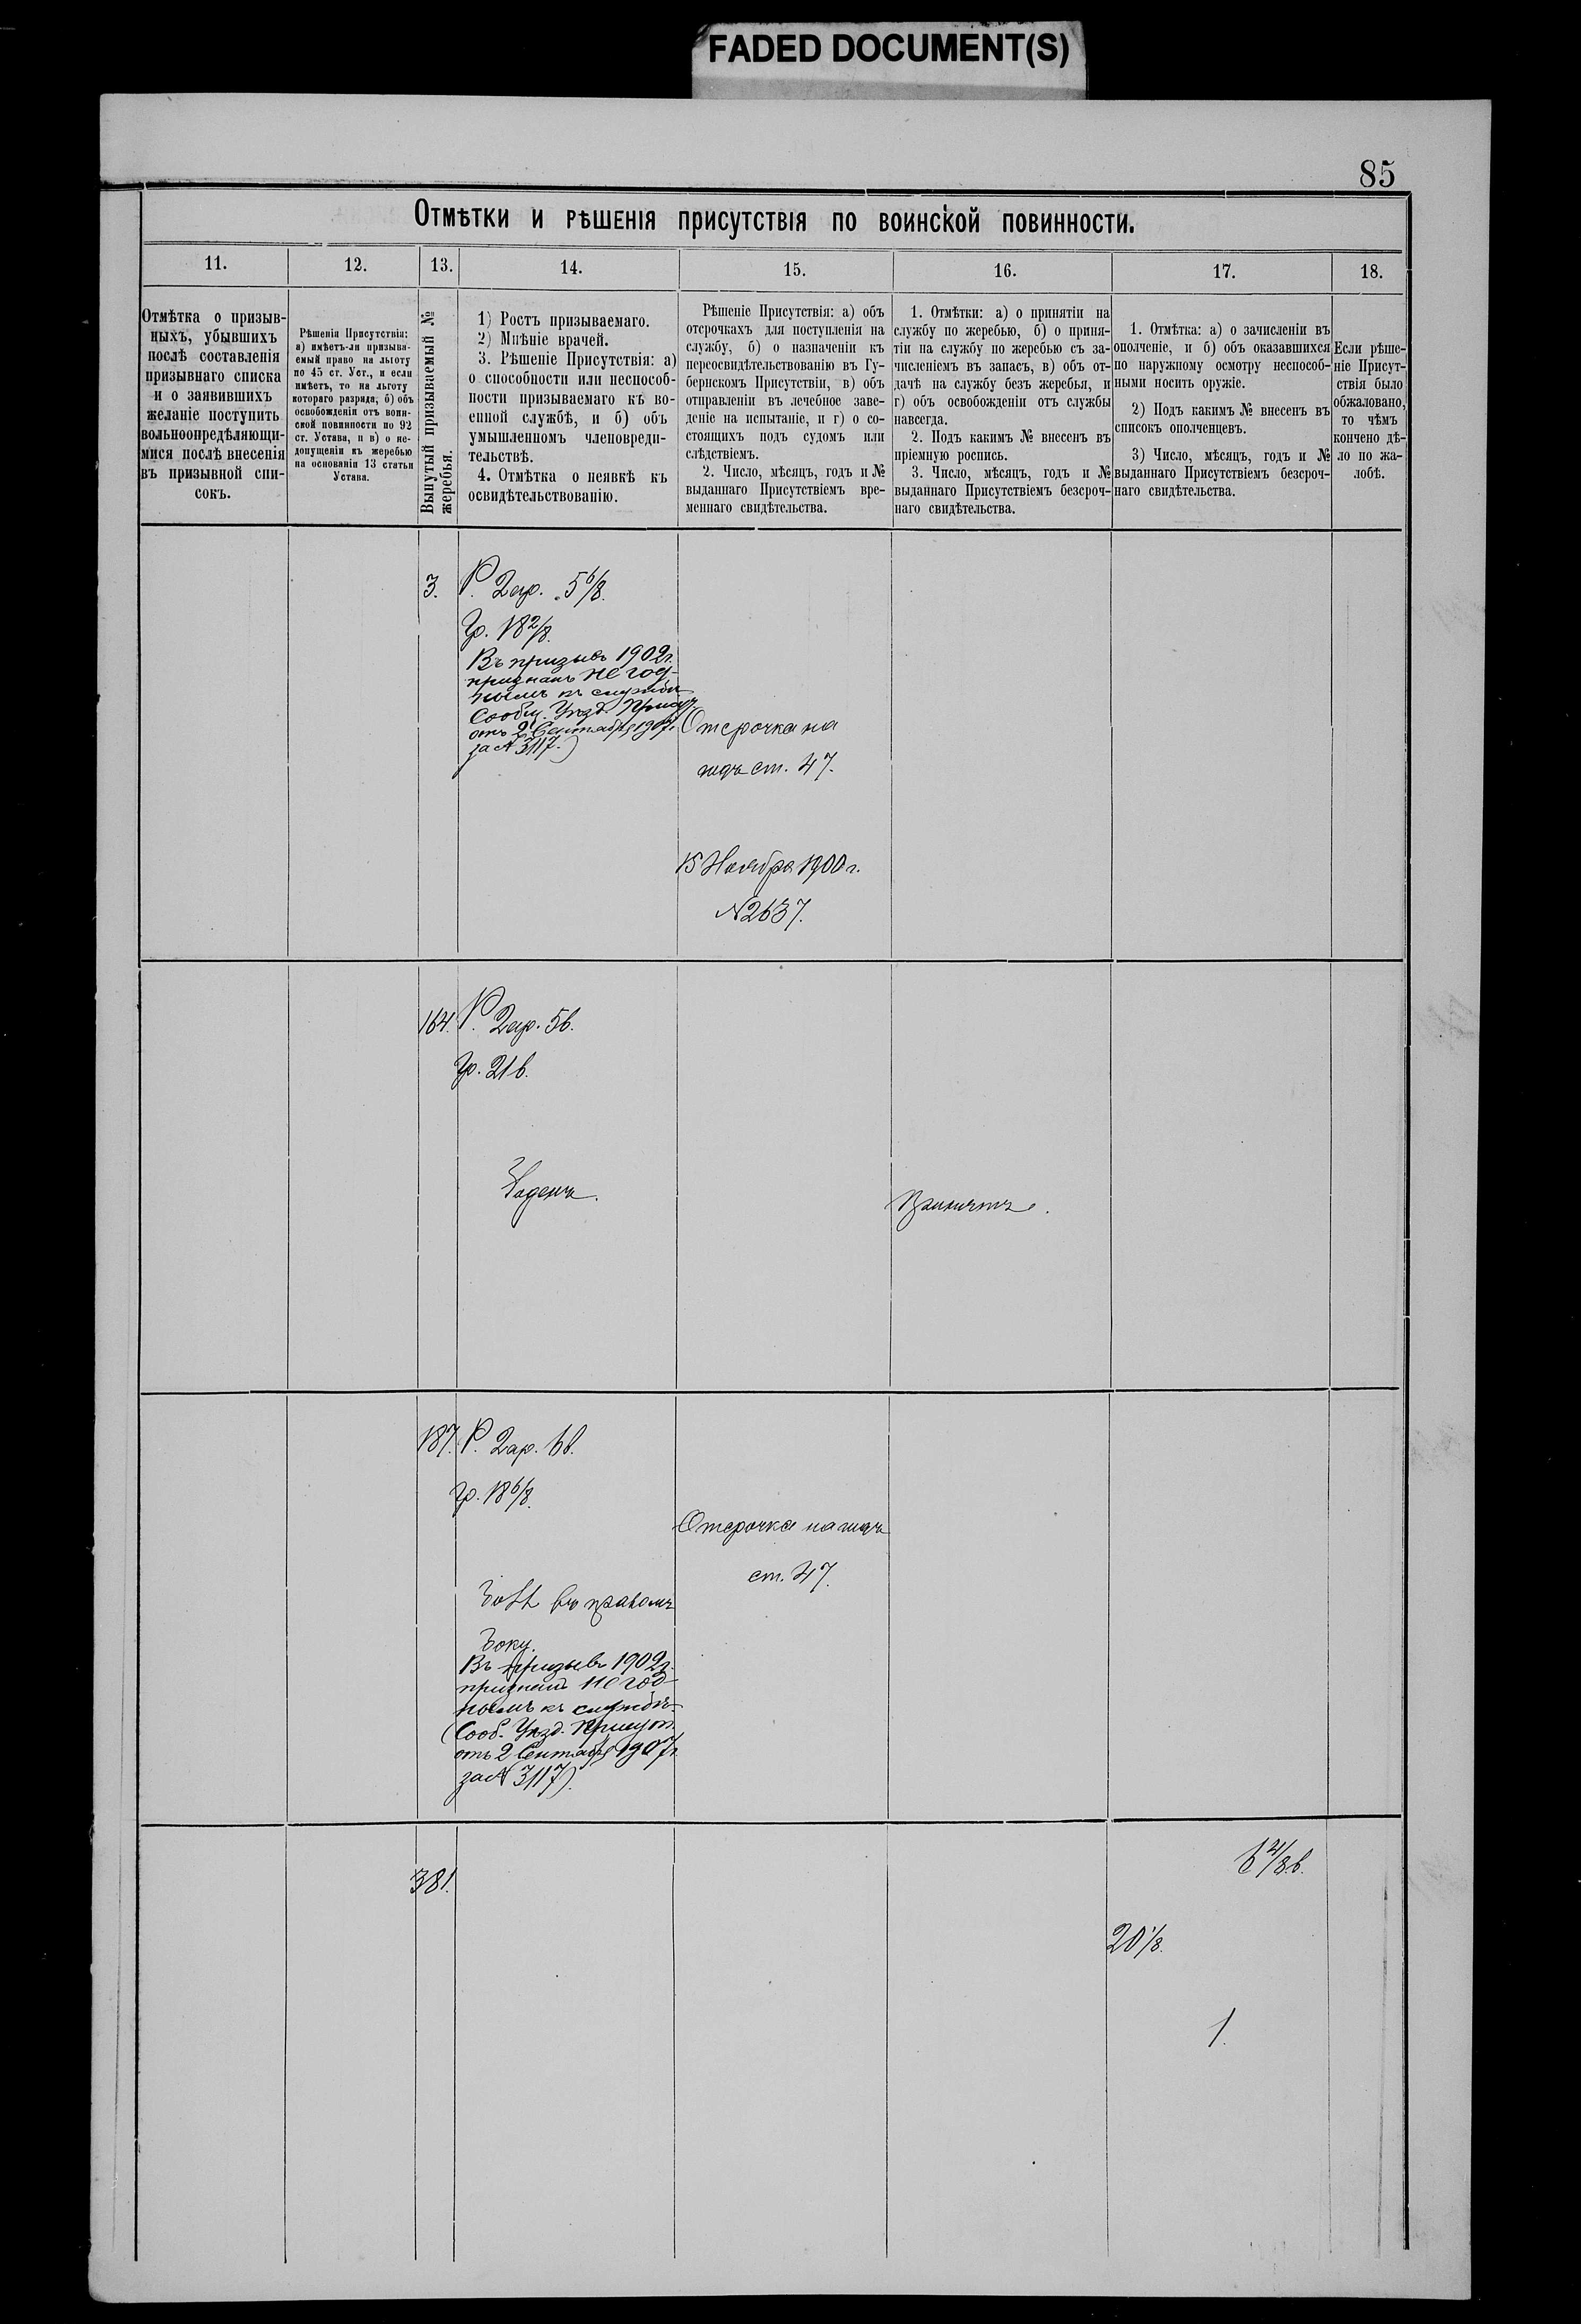 FADED DOCUMENT(S)
85
Отмѣтки и рѣшенія присутствія по воинской повинности.
11. 12. 13. 14. 15. 16. 17. 18.
Отмѣтка о призыв-
ныхъ, убывшихъ
послѣ составленія
призывнаго списка
и о заявившихъ
желаніе поступить
вольноопредѣляющи-
мися послѣ внесенія
въ призывной спи-
сокъ.
Рѣшенія Присутствія:
а) имѣетъ-ли призыва-
емый право на льготу
по 45 ст. Уст., и если
имѣетъ, то на льготу
котораго разряда; б) объ
освобожденіи отъ воин-
ской повинности по 92
ст. Устава, и в) о не-
допущеніи къ жеребью
на основаніи 13 статьи
Устава.
Вынутый призываемый №
жеребья.
1) Ростъ призываемаго.
2) Мнѣніе врачей.
3. Рѣшеніе Присутствія: а)
о способности или неспособ-
ности призываемаго къ во-
енной службѣ, и б) объ
умышленномъ членовреди-
тельствѣ.
4. Отмѣтка о неявкѣ къ
освидѣтельствованію.
Рѣшеніе Присутствія: а) объ
отсрочкахъ для поступленія на
службу, б) о назначеніи къ
переосвидѣтельствованію въ Гу-
бернскомъ Присутствіи, в) объ
отправленіи въ лечебное заве-
деніе на испытаніе, и г) о со-
стоящихъ подъ судомъ или
слѣдствіемъ.
2. Число, мѣсяцъ, годъ и №
выданнаго Присутствіемъ вре-
меннаго свидѣтельства.
1. Отмѣтки: а) о принятіи на
службу по жеребью, б) о приня-
тіи на службу по жеребью съ за-
численіемъ въ запасъ, в) объ от-
дачѣ на службу безъ жеребья, и
г) объ освобожденіи отъ службы
навсегда.
2. Подъ какимъ № внесенъ въ
пріемную роспись.
3. Число, мѣсяцъ, годъ и №
выданнаго Присутствіемъ безсроч-
наго свидѣтельства.
1. Отмѣтка: а) о зачисленіи въ
ополченіе, и б) объ оказавшихся
по наружному осмотру неспособ-
ными носить оружіе.
2) Подъ какимъ № внесенъ въ
списокъ ополченцевъ.
3) Число, мѣсяцъ, годъ и №
выданнаго Присутствіемъ безсроч-
наго свидѣтельства.
Если рѣше-
ніе Присут-
ствія было
обжаловано,
то чѣмъ
кончено дѣ-
ло по жа-
лобѣ.
3. Р. 2 ар. 5 6/8.
Гр. 18 2/8.
Въ призывъ 1902 г.
признанъ не год-
нымъ къ службѣ
Сообщ. Уѣзд. Присут.
отъ 2 Сентября 1907 г.
за № 3117.)
Отсрочка на
годъ ст. 47.
15 Ноября 1900 г.
№ 2637.
164. Р. 2 ар. 5 в.
Гр. 21 в.
Годенъ.
Принятъ.
187. Р. 2 ар. 6 в.
Гр. 18 6/8.
Отсрочка на годъ
ст. 47.
въ правомъ
боку.
Въ призывъ 1902 г.
признанъ не год-
нымъ къ службѣ
(Сооб. Уѣзд. Присут.
отъ 2 Сентября 1907 г.
за № 3117).
381.
6 4/8 в.
20 1/8.
1.